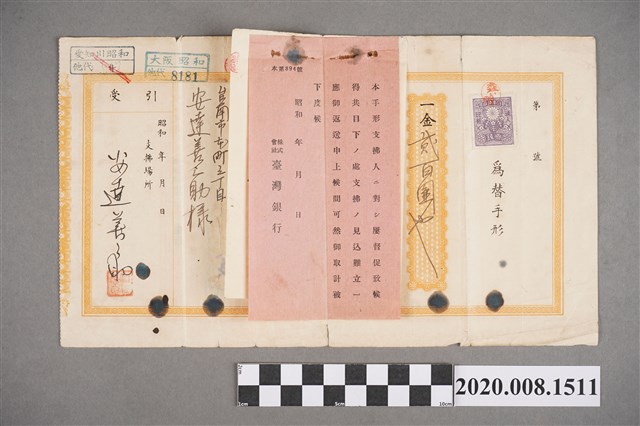 第　號
為替手形
一金貳百圓也
本手形支拂人ニ對シ屢督促致候
得共目下ノ處支拂ノ見込難立一
應御返還申上候間可然御取計被
下度候
昭和　年　月　日
株式會社 臺灣銀行
本第994號
台南市本町三丁目
安達善之助様
大阪昭和
他代 8181
愛知引昭和
他代
引受
昭和　年　月　日
支拂場所
安達善之助
1cm
5cm
10cm
2020.008.1511